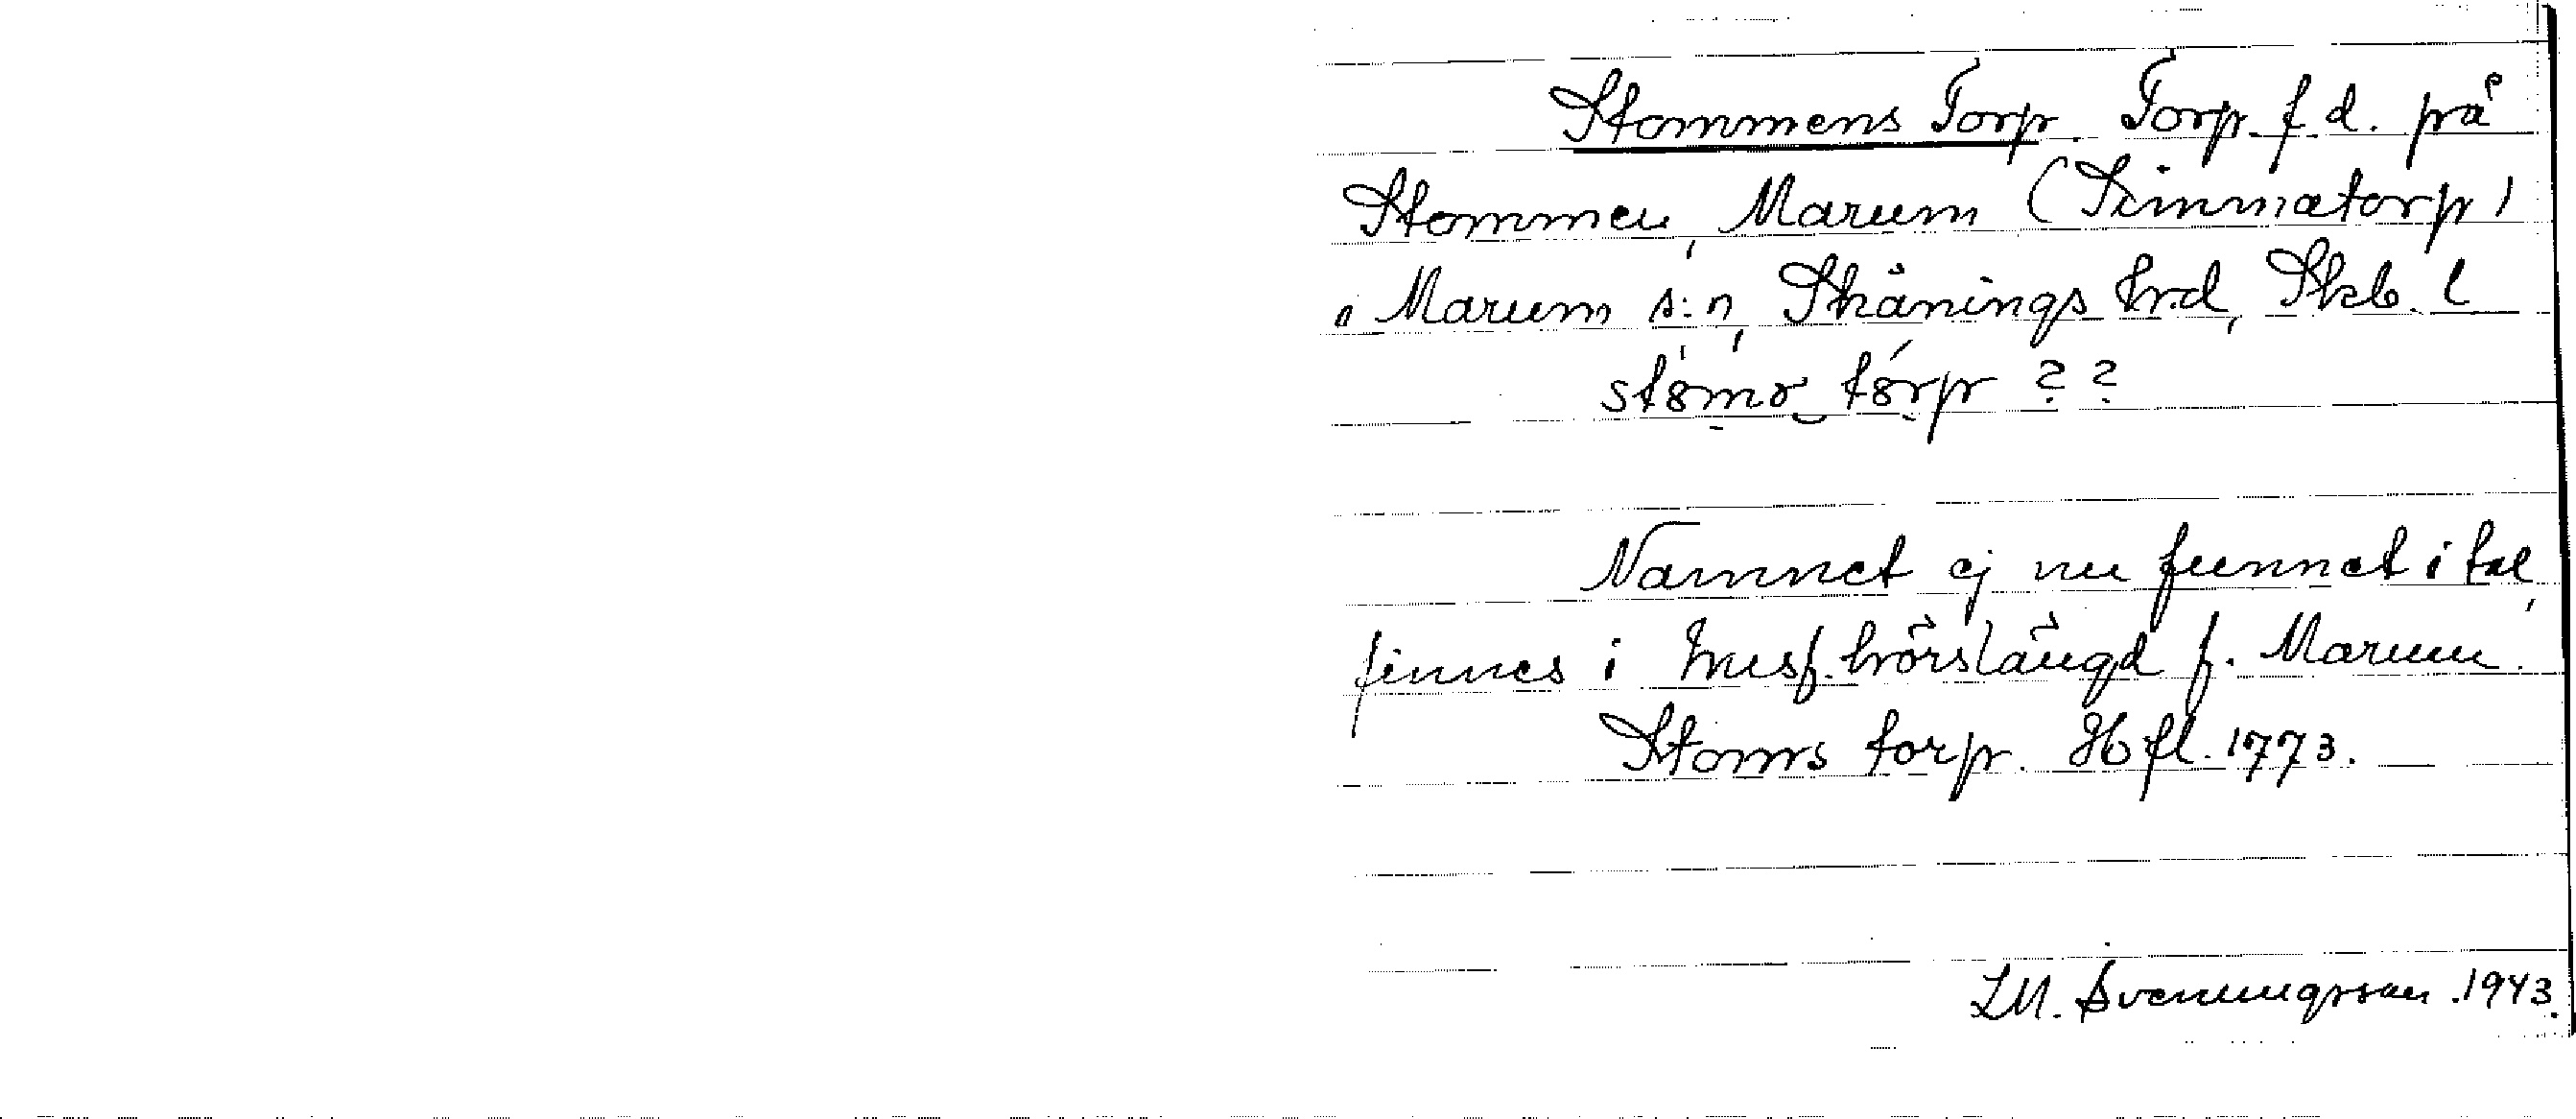 Stommens Torp. Torp f d. på
Stommen, Marum (Simmatorp)
i Marum s:n, Skånings hrd, Skb. l
Namnet ej nu funnet i tal,
finnes i husf.hörslängd f. Marum.
Stoms torp. Hfl. 1773.
LM. Svenungsson .1943.